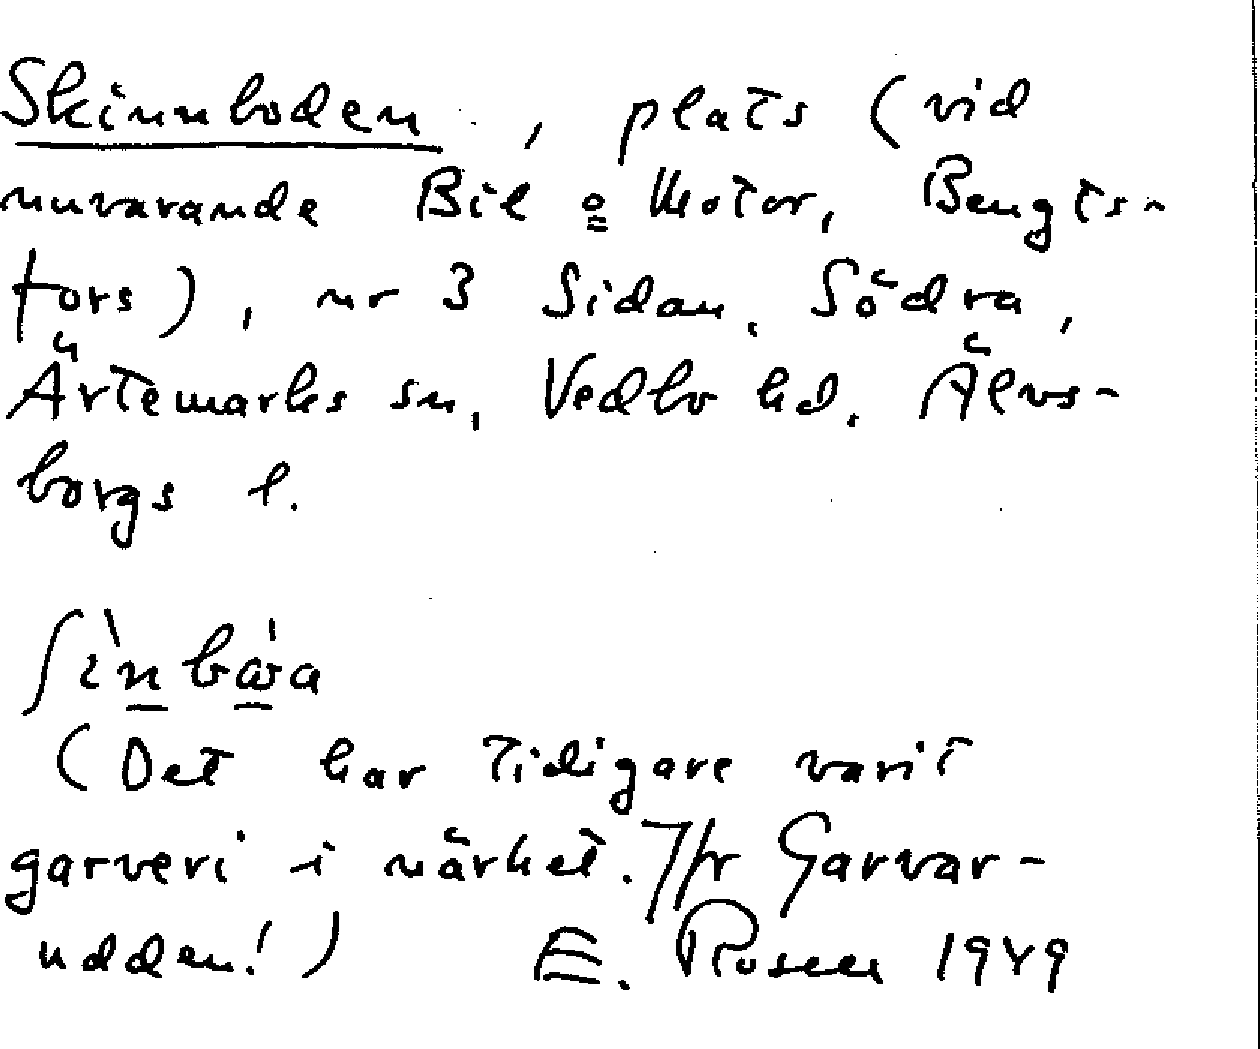 Skinnboden, plats (vid
nuvarande Bil o Motor, Bengts-
fors), nr 3 Sidan, Södra,
Ärtemarks sn, Vedbo hd. Älvs-
borgs l.
(Det har tidigare varit
garveri i närhet. Jfr Garvar-
udden!) E. Rosell 1949